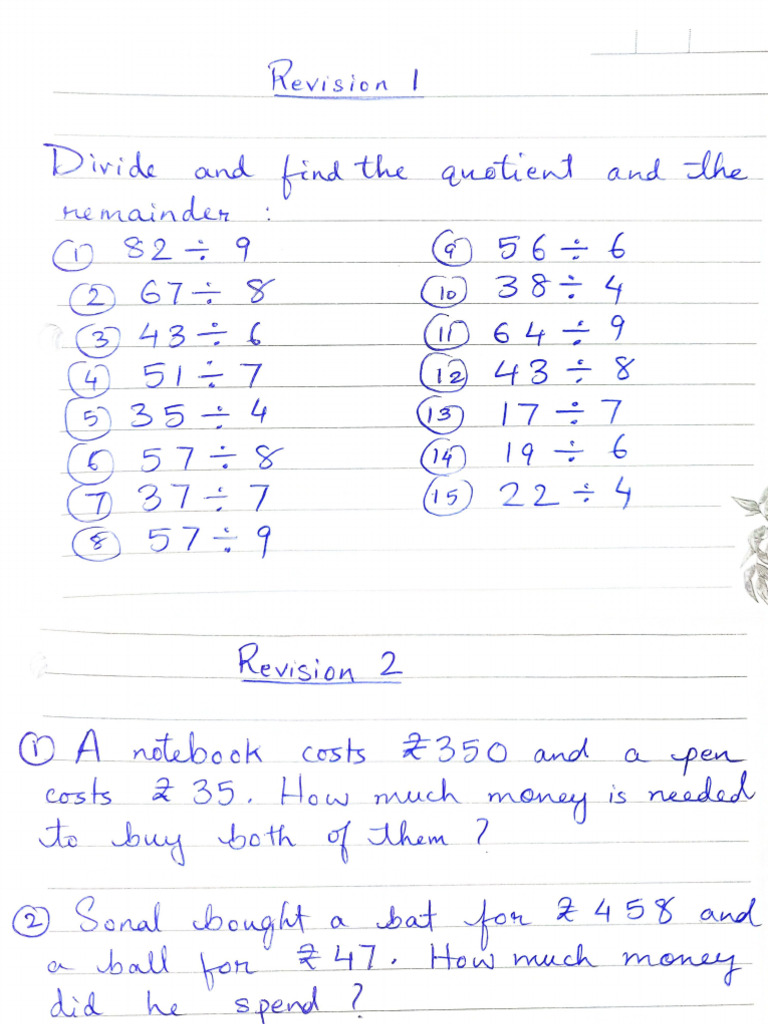 Revision 1
Divide and find the quotient and the
remainder :
① 82 ÷ 9
② 67 ÷ 8
③ 43 ÷ 6
④ 51 ÷ 7
⑤ 35 ÷ 4
⑥ 57 ÷ 8
⑦ 37 ÷ 7
⑧ 57 ÷ 9
⑨ 56 ÷ 6
⑩ 38 ÷ 4
⑪ 64 ÷ 9
⑫ 43 ÷ 8
⑬ 17 ÷ 7
⑭ 19 ÷ 6
⑮ 22 ÷ 4
Revision 2
① A notebook costs ₹350 and a pen
costs ₹ 35. How much money is needed
to buy both of them ?
② Sonal bought a bat for ₹ 458 and
a ball for ₹47. How much money
did he spend ?